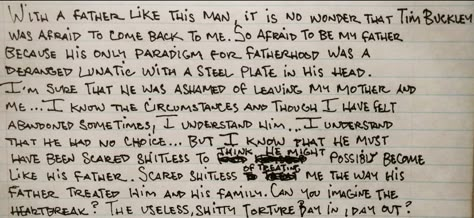 WITH A FATHER LIKE THIS MAN, IT IS NO WONDER THAT TIM BUCKLEY
WAS AFRAID TO COME BACK TO ME. SO AFRAID TO BE MY FATHER
BECAUSE HIS ONLY PARADIGM FOR FATHERHOOD WAS A
DERANGED LUNATIC WITH A STEEL PLATE IN HIS HEAD.
I'M SURE THAT HE WAS ASHAMED OF LEAVING MY MOTHER AND
ME... I KNOW THE CIRCUMSTANCES AND THOUGH I HAVE FELT
ABANDONED SOMETIMES, I UNDERSTAND HIM... I UNDERSTAND
THAT HE HAD NO CHOICE... BUT I KNOW THAT HE MUST
HAVE BEEN SCARED SHITLESS TO THINK HE MIGHT POSSIBLY BECOME
LIKE HIS FATHER. SCARED SHITLESS OF TREATING ME THE WAY HIS
FATHER TREATED HIM AND HIS FAMILY. CAN YOU IMAGINE THE
HEARTBREAK? THE USELESS, SHITTY TORTURE DAY IN, DAY OUT?